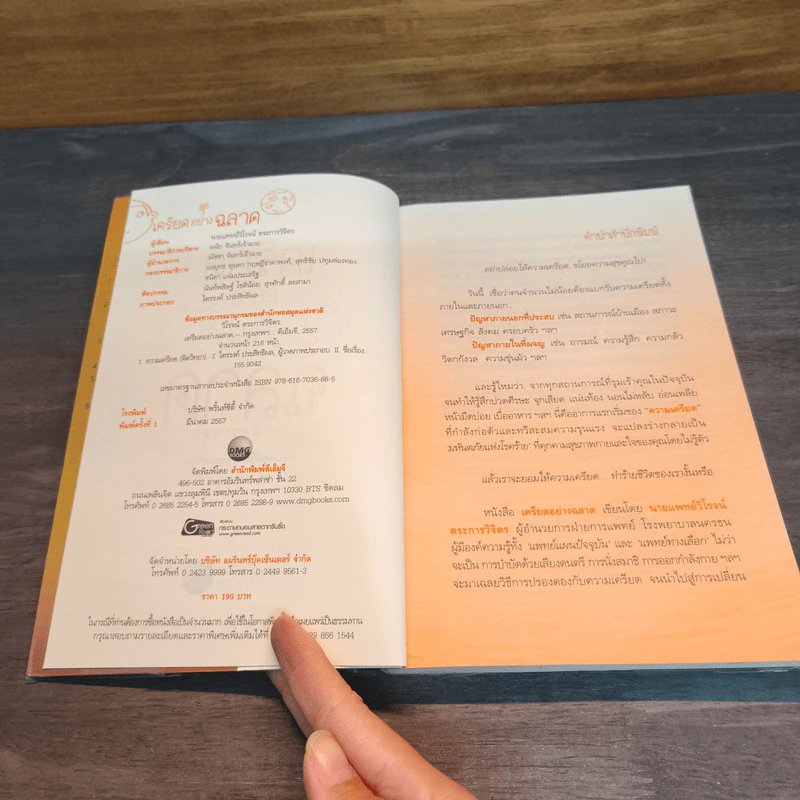 เครียด อย่าง ฉลาด
ผู้เขียน นายแพทย์วิโรจน์ ตระการวิจิตร
บรรณาธิการบริหาร ดนัย จันทร์เจ้าฉาย
ผู้อำนวยการ วนิษา จันทร์เจ้าฉาย
กองบรรณาธิการ
ชนิดา แจ่มประเสริฐ
ศิลปกรรม
ภาพประกอบ ไตรรงค์ ประสิทธิผล
ข้อมูลทางบรรณานุกรมของสำนักหอสมุดแห่งชาติ
วิโรจน์ ตระการวิจิตร
เครียดอย่างฉลาด.-- กรุงเทพฯ : ดีเอ็มจี, 2557.
จำนวนหน้า 216 หน้า
1. ความเครียด (จิตวิทยา). I. ไตรรงค์ ประสิทธิผล, ผู้วาดภาพประกอบ. II. ชื่อเรื่อง
155.9042
เลขมาตรฐานสากลประจำหนังสือ ISBN 978-616-7036-88-5
โรงพิมพ์ บริษัท พริ้นท์ซิตี้ จำกัด
พิมพ์ครั้งที่ 1 มีนาคม 2557
DMG
BOOKS
จัดพิมพ์โดย สำนักพิมพ์ดีเอ็มจี
496-502 อาคารอัมรินทร์พลาซ่า ชั้น 22
ถนนเพลินจิต แขวงลุมพินี เขตปทุมวัน กรุงเทพฯ 10330 BTS ชิดลม
โทรศัพท์ 0 2685 2254-5 โทรสาร 0 2685 2298-9 www.dmgbooks.com
Green
Read
พิมพ์บน
กระดาษถนอมสายตากรีนรี้ด
www.greenread.com
จัดจำหน่ายโดย บริษัท อมรินทร์บุ๊คเซ็นเตอร์ จำกัด
โทรศัพท์ 0 2423 9999 โทรสาร 0 2449 9561-3
ราคา 190 บาท
ในกรณีที่ท่านต้องการซื้อหนังสือเป็นจำนวนมาก เพื่อใช้ในโอกาสพิ เผยแพร่เป็นธรรมทาน
กรุณาสอบถามรายละเอียดและราคาพิเศษเพิ่มเติมได้ที่ 89 866 1544
คำนำสำนักพิมพ์
อย่าปล่อยให้ความเครียด ขโมยความสุขคุณไป!
วันนี้ เชื่อว่าคนจำนวนไม่น้อยต้องแบกรับความเครียดทั้ง
ภายในและภายนอก...
ปัญหาภายนอกที่ประสบ เช่น สถานการณ์บ้านเมือง สภาวะ
เศรษฐกิจ สังคม ครอบครัว ฯลฯ
ปัญหาภายในที่ผจญ เช่น อารมณ์ ความรู้สึก ความกลัว
วิตกกังวล ความขุ่นมัว ฯลฯ
และรู้ไหมว่า จากทุกสถานการณ์ที่รุมเร้าคุณในปัจจุบัน
จนทำให้รู้สึกปวดศีรษะ จุกเสียด แน่นท้อง นอนไม่หลับ อ่อนเพลีย
หน้ามืดบ่อย เบื่ออาหาร ฯลฯ นี่คืออาการแรกเริ่มของ “ความเครียด”
ที่กำลังก่อตัวและทวีสะสมความรุนแรง จะแปลงร่างกลายเป็น
‘มหันตภัยแห่งโรคร้าย’ ที่คุกคามสุขภาพกายและใจของคุณโดยไม่รู้ตัว
แล้วเราจะยอมให้ความเครียด... ทำร้ายชีวิตของเรางั้นหรือ
หนังสือ เครียดอย่างฉลาด เขียนโดย นายแพทย์วิโรจน์
ตระการวิจิตร ผู้อำนวยการฝ่ายการแพทย์ โรงพยาบาลนครธน
ผู้มีองค์ความรู้ทั้ง ‘แพทย์แผนปัจจุบัน’ และ ‘แพทย์ทางเลือก’ ไม่ว่า
จะเป็น การบำบัดด้วยเสียงดนตรี การนั่งสมาธิ การออกกำลังกาย ฯลฯ
จะมาเฉลยวิธีการปรองดองกับความเครียด จนนำไปสู่การเปลี่ยน